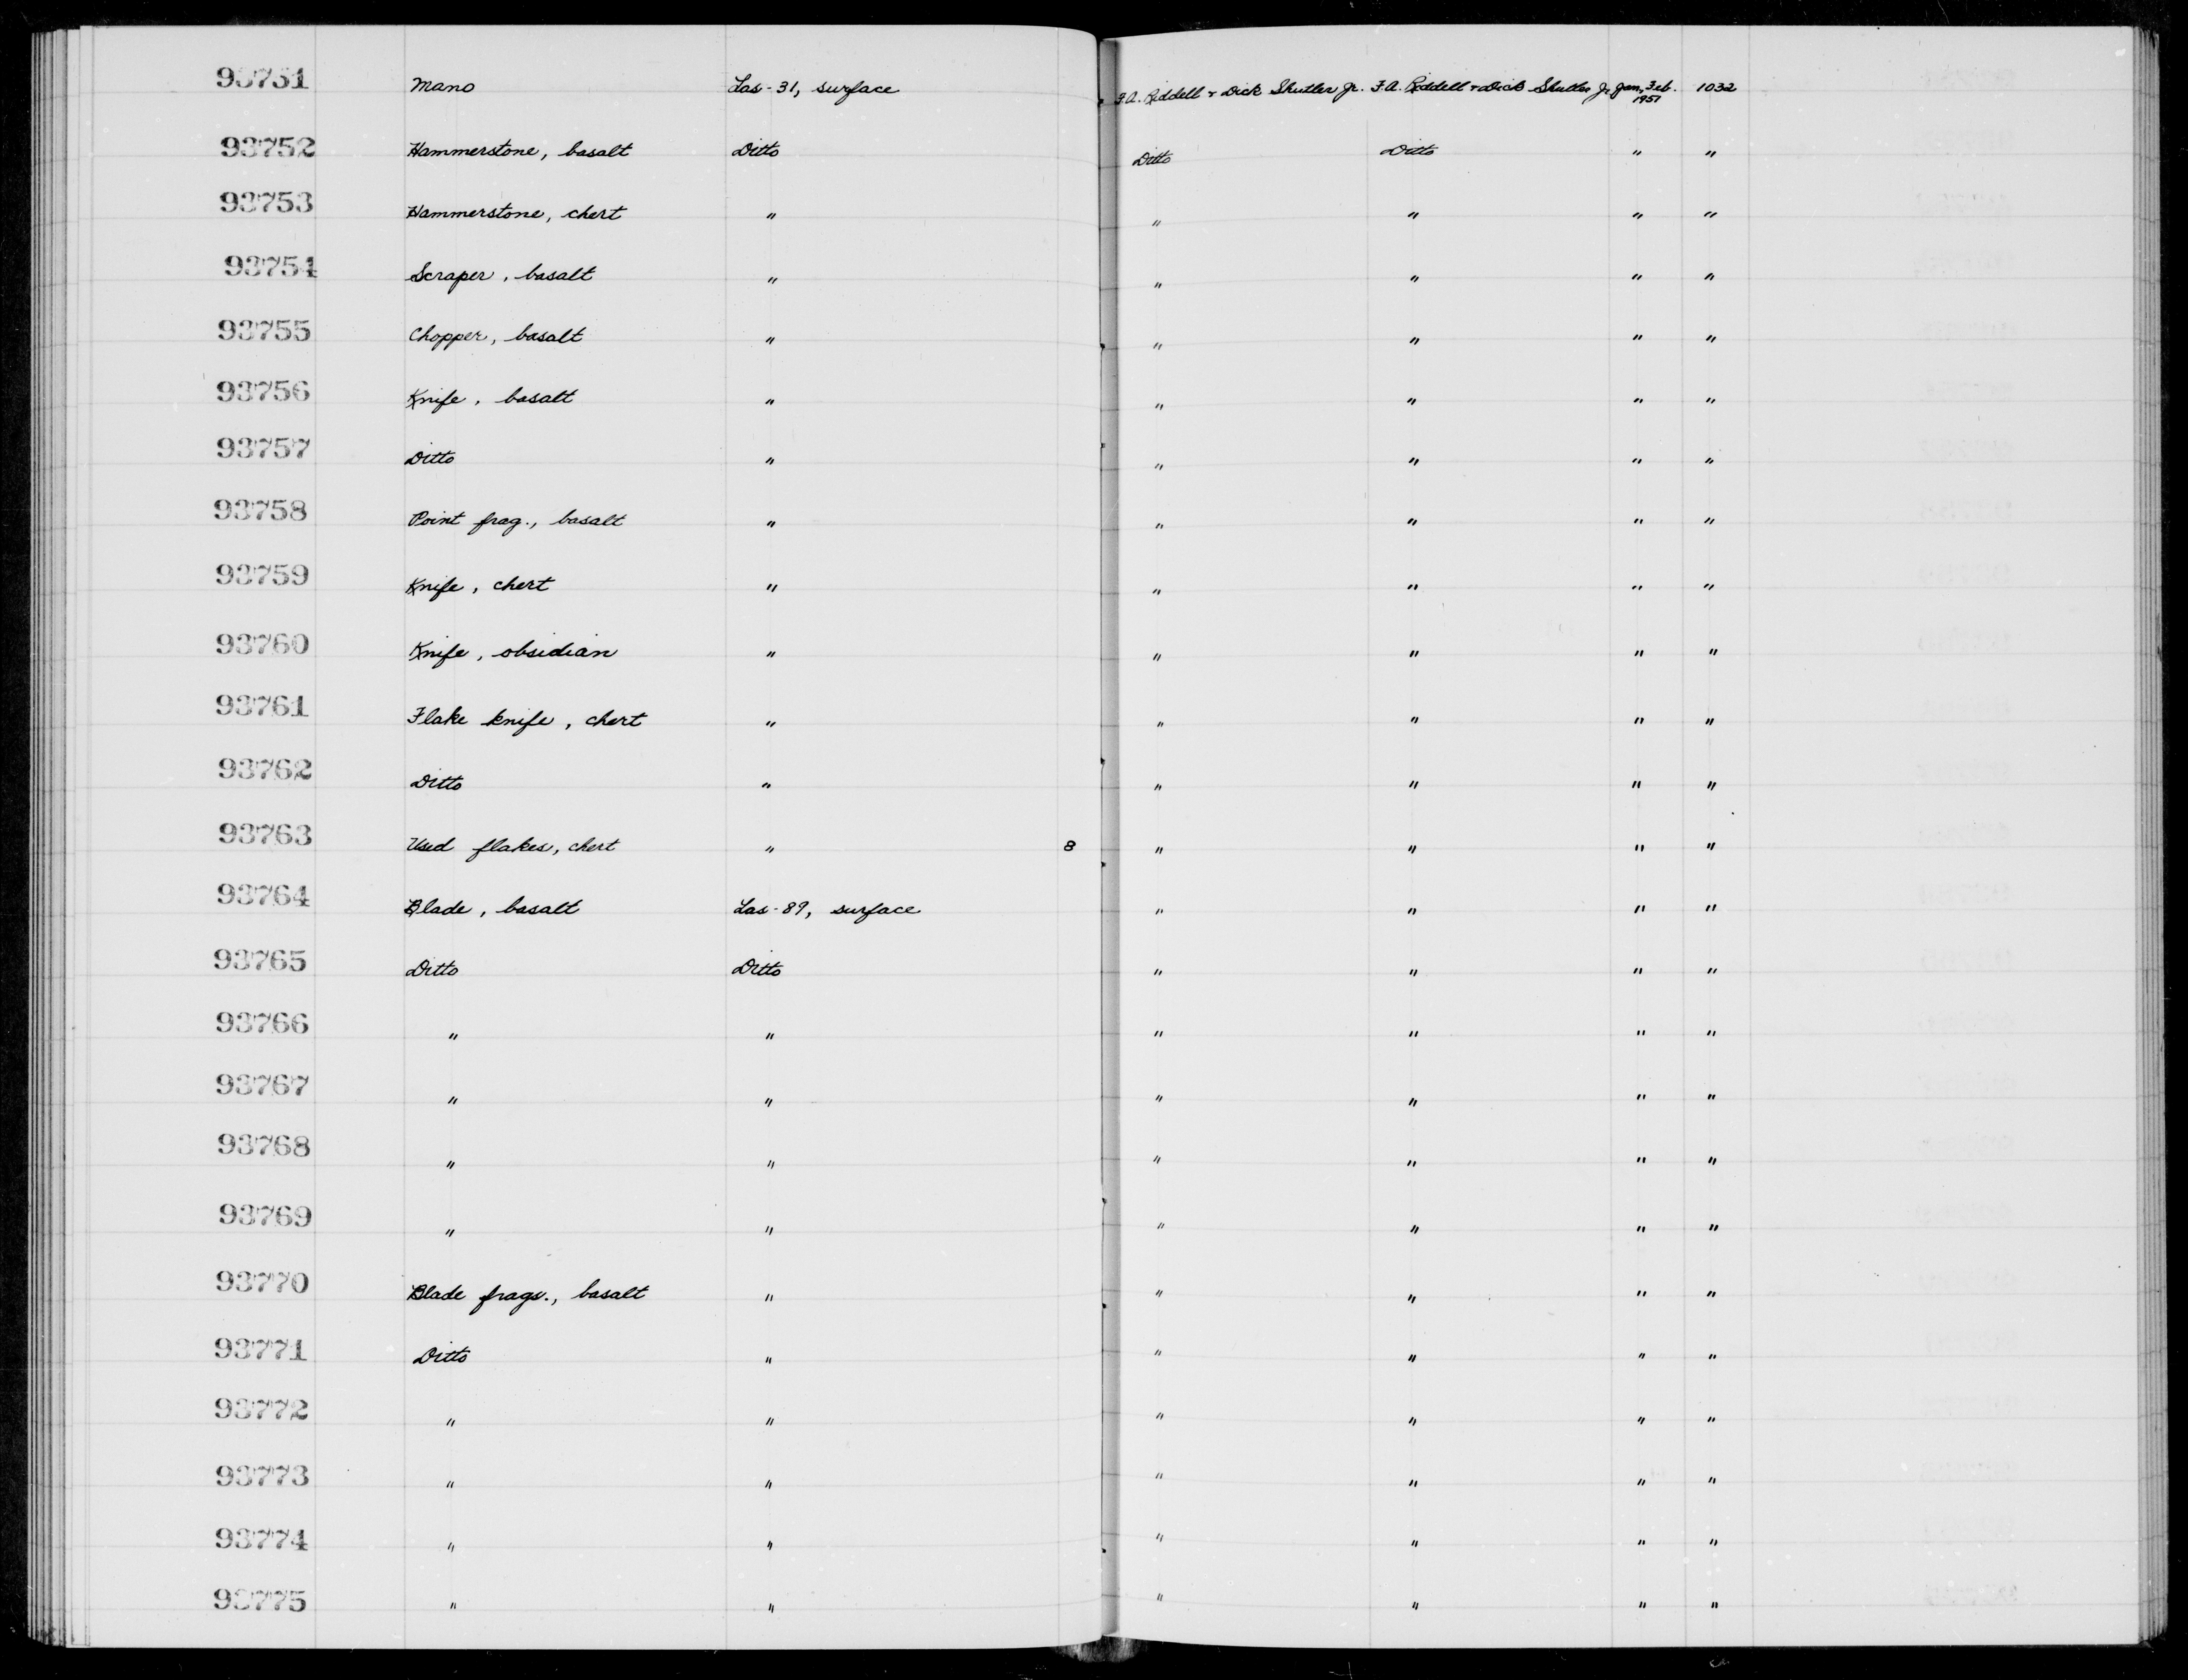 93751 Mano Las-31, surface F.A. Riddell + Dick Shutler Jr. F.A. Riddell + Dick Shutler Jr. Jan, Feb. 1951 1032
93752 Hammerstone, basalt Ditto Ditto Ditto " "
93753 Hammerstone, chert " " " " "
93754 Scraper, basalt " " " " "
93755 Chopper, basalt " " " " "
93756 Knife, basalt " " " " "
93757 Ditto " " " " "
93758 Point frag., basalt " " " " "
93759 Knife, chert " " " " "
93760 Knife, obsidian " " " " "
93761 Flake knife, chert " " " " "
93762 Ditto " " " " "
93763 Used flakes, chert " 8 " " " "
93764 Blade, basalt Las-89, surface " " " "
93765 Ditto Ditto " " " "
93766 " " " " " "
93767 " " " " " "
93768 " " " " " "
93769 " " " " " "
93770 Blade frags., basalt " " " " "
93771 Ditto " " " " "
93772 " " " " " "
93773 " " " " " "
93774 " " " " " "
93775 " " " " " "